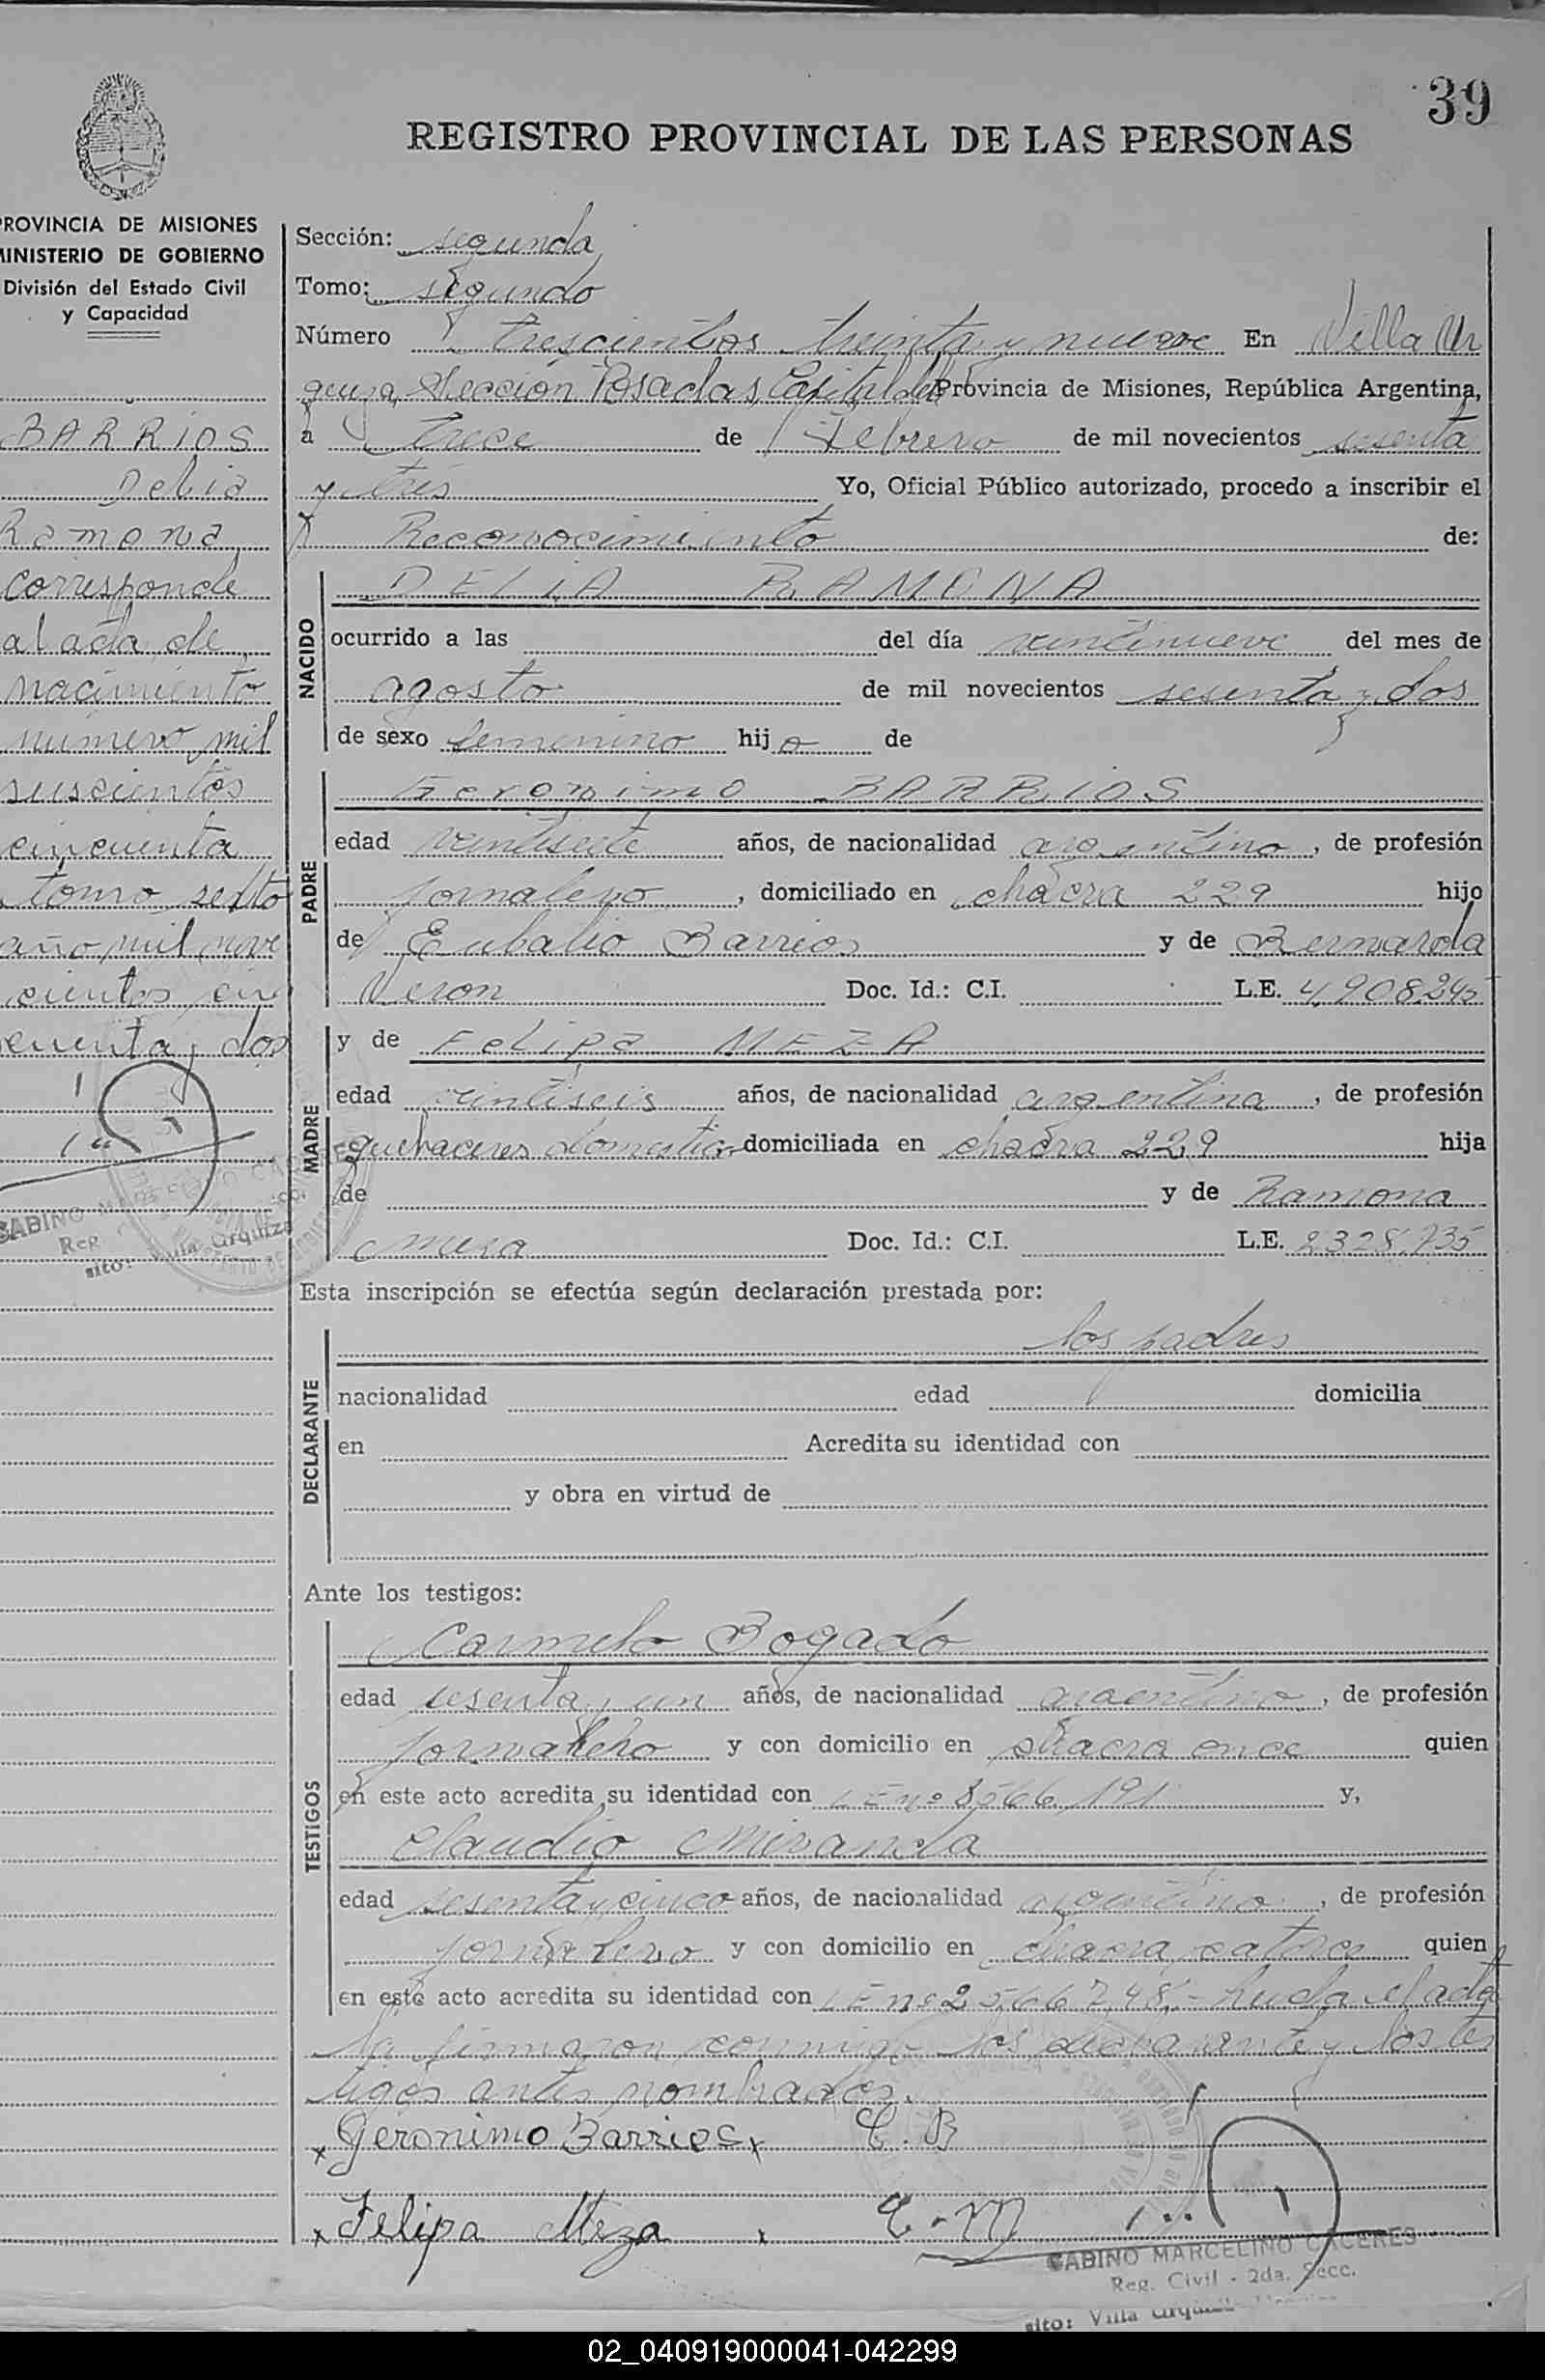 39
REGISTRO PROVINCIAL DE LAS PERSONAS
PROVINCIA DE MISIONES
MINISTERIO DE GOBIERNO
División del Estado Civil
y Capacidad
BARRIOS
Delia
Ramona
corresponde
al acta de
nacimiento
número mil
seiscientos
cincuenta
tomo sexto
año mil nove
cientos cin
cuenta y dos
Sección: segunda
Tomo: segundo
Número trescientos treinta y nueve En Villa Ur
quiza, Sección Posadas, Capital de la Provincia de Misiones, República Argentina,
a trece de Febrero de mil novecientos sesenta
y tres Yo, Oficial Público autorizado, procedo a inscribir el
Reconocimiento de:
NACIDO
DELIA RAMONA
ocurrido a las del día veintinueve del mes de
agosto de mil novecientos sesenta y dos
de sexo femenino hij a de
PADRE
Geronimo BARRIOS
edad veintisiete años, de nacionalidad argentino, de profesión
jornalero, domiciliado en chacra 229 hijo
de Eubalio Barrios y de Bernarda
Veron Doc. Id.: C.I. L.E. 4,908,245
MADRE
y de Felipa MEZA
edad veintiseis años, de nacionalidad argentina, de profesión
quehaceres domestico domiciliada en chacra 229 hija
de y de Ramona
meza Doc. Id.: C.I. L.E. 2328.735
Esta inscripción se efectúa según declaración prestada por:
DECLARANTE
los padres
nacionalidad edad domicilia
en Acredita su identidad con
y obra en virtud de
Ante los testigos:
TESTIGOS
Carmelo Bogado
edad sesenta y un años, de nacionalidad argentino, de profesión
jornalero y con domicilio en chacra once quien
en este acto acredita su identidad con LE nº 8566,191 y,
Claudio Miranda
edad sesenta y cinco años, de nacionalidad argentino, de profesión
jornalero y con domicilio en chacra catorce quien
en este acto acredita su identidad con LE nº 2,566748,- Leida el acta
la firmaron conmigo los declarante y los tes
tigos antes nombrados.
x Geronimo Barrios x C. B
x Felipa Meza x C. M
GABINO MARCELINO CACERES
Reg. Civil - 2da. Secc.
sito: Villa Urquiza
02_040919000041-042299